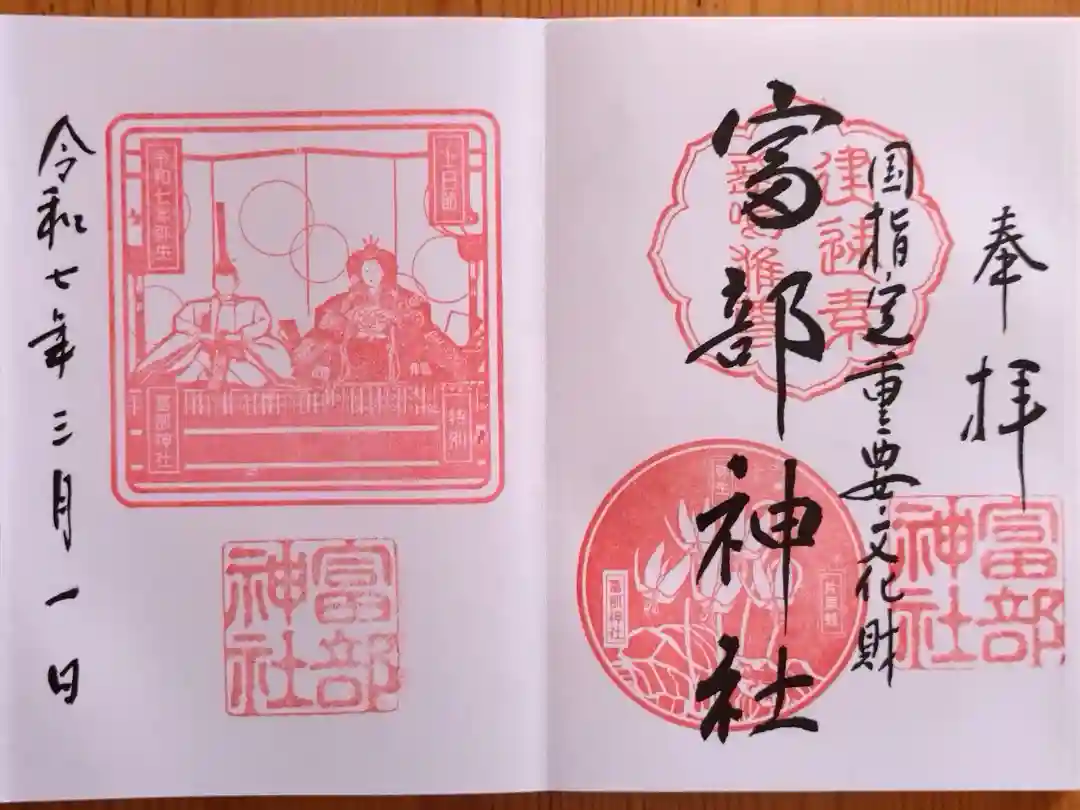 奉拝
富部
神社
国指定重要文化財
建速素
富部神社
富部神社
上巳節
特別
令和七年弥生
富部神社
富部
神社
令和七年三月一日